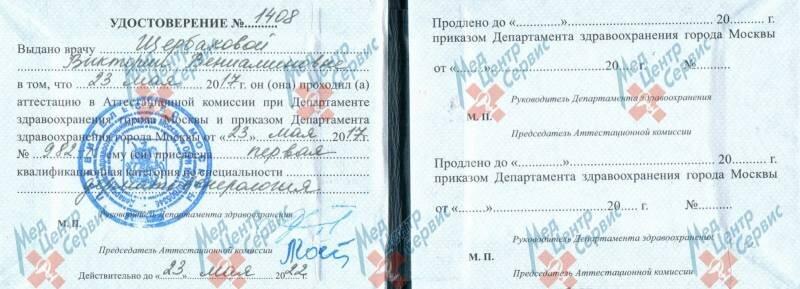 УДОСТОВЕРЕНИЕ №....1408
Выдано врачу Щербаковой
Виктории Вениаминовне
в том, что 23 мая 2017 г. он (она) проходил (а)
аттестацию в Аттестационной комиссии при Департаменте
здравоохранения города Москвы и приказом Департамента
здравоохранения города Москвы от «23» мая 2017
№ 982 ему (ей) присвоена первая
квалификационная категория по специальности
дерматовенерология
Руководитель Департамента здравоохранения
М. П.
Председатель Аттестационной комиссии
Действительно до «23» мая 2022 г.
Продлено до «............»........................................ 20.......... г.
приказом Департамента здравоохранения города Москвы
от «.......»................................ 20..... г. №..........
Руководитель Департамента здравоохранения
М. П.
Председатель Аттестационной комиссии
Продлено до «............»........................................ 20.......... г.
приказом Департамента здравоохранения города Москвы
от «.......»................................ 20..... г. №..........
Руководитель Департамента здравоохранения
М. П.
Председатель Аттестационной комиссии
Мед Центр Сервис